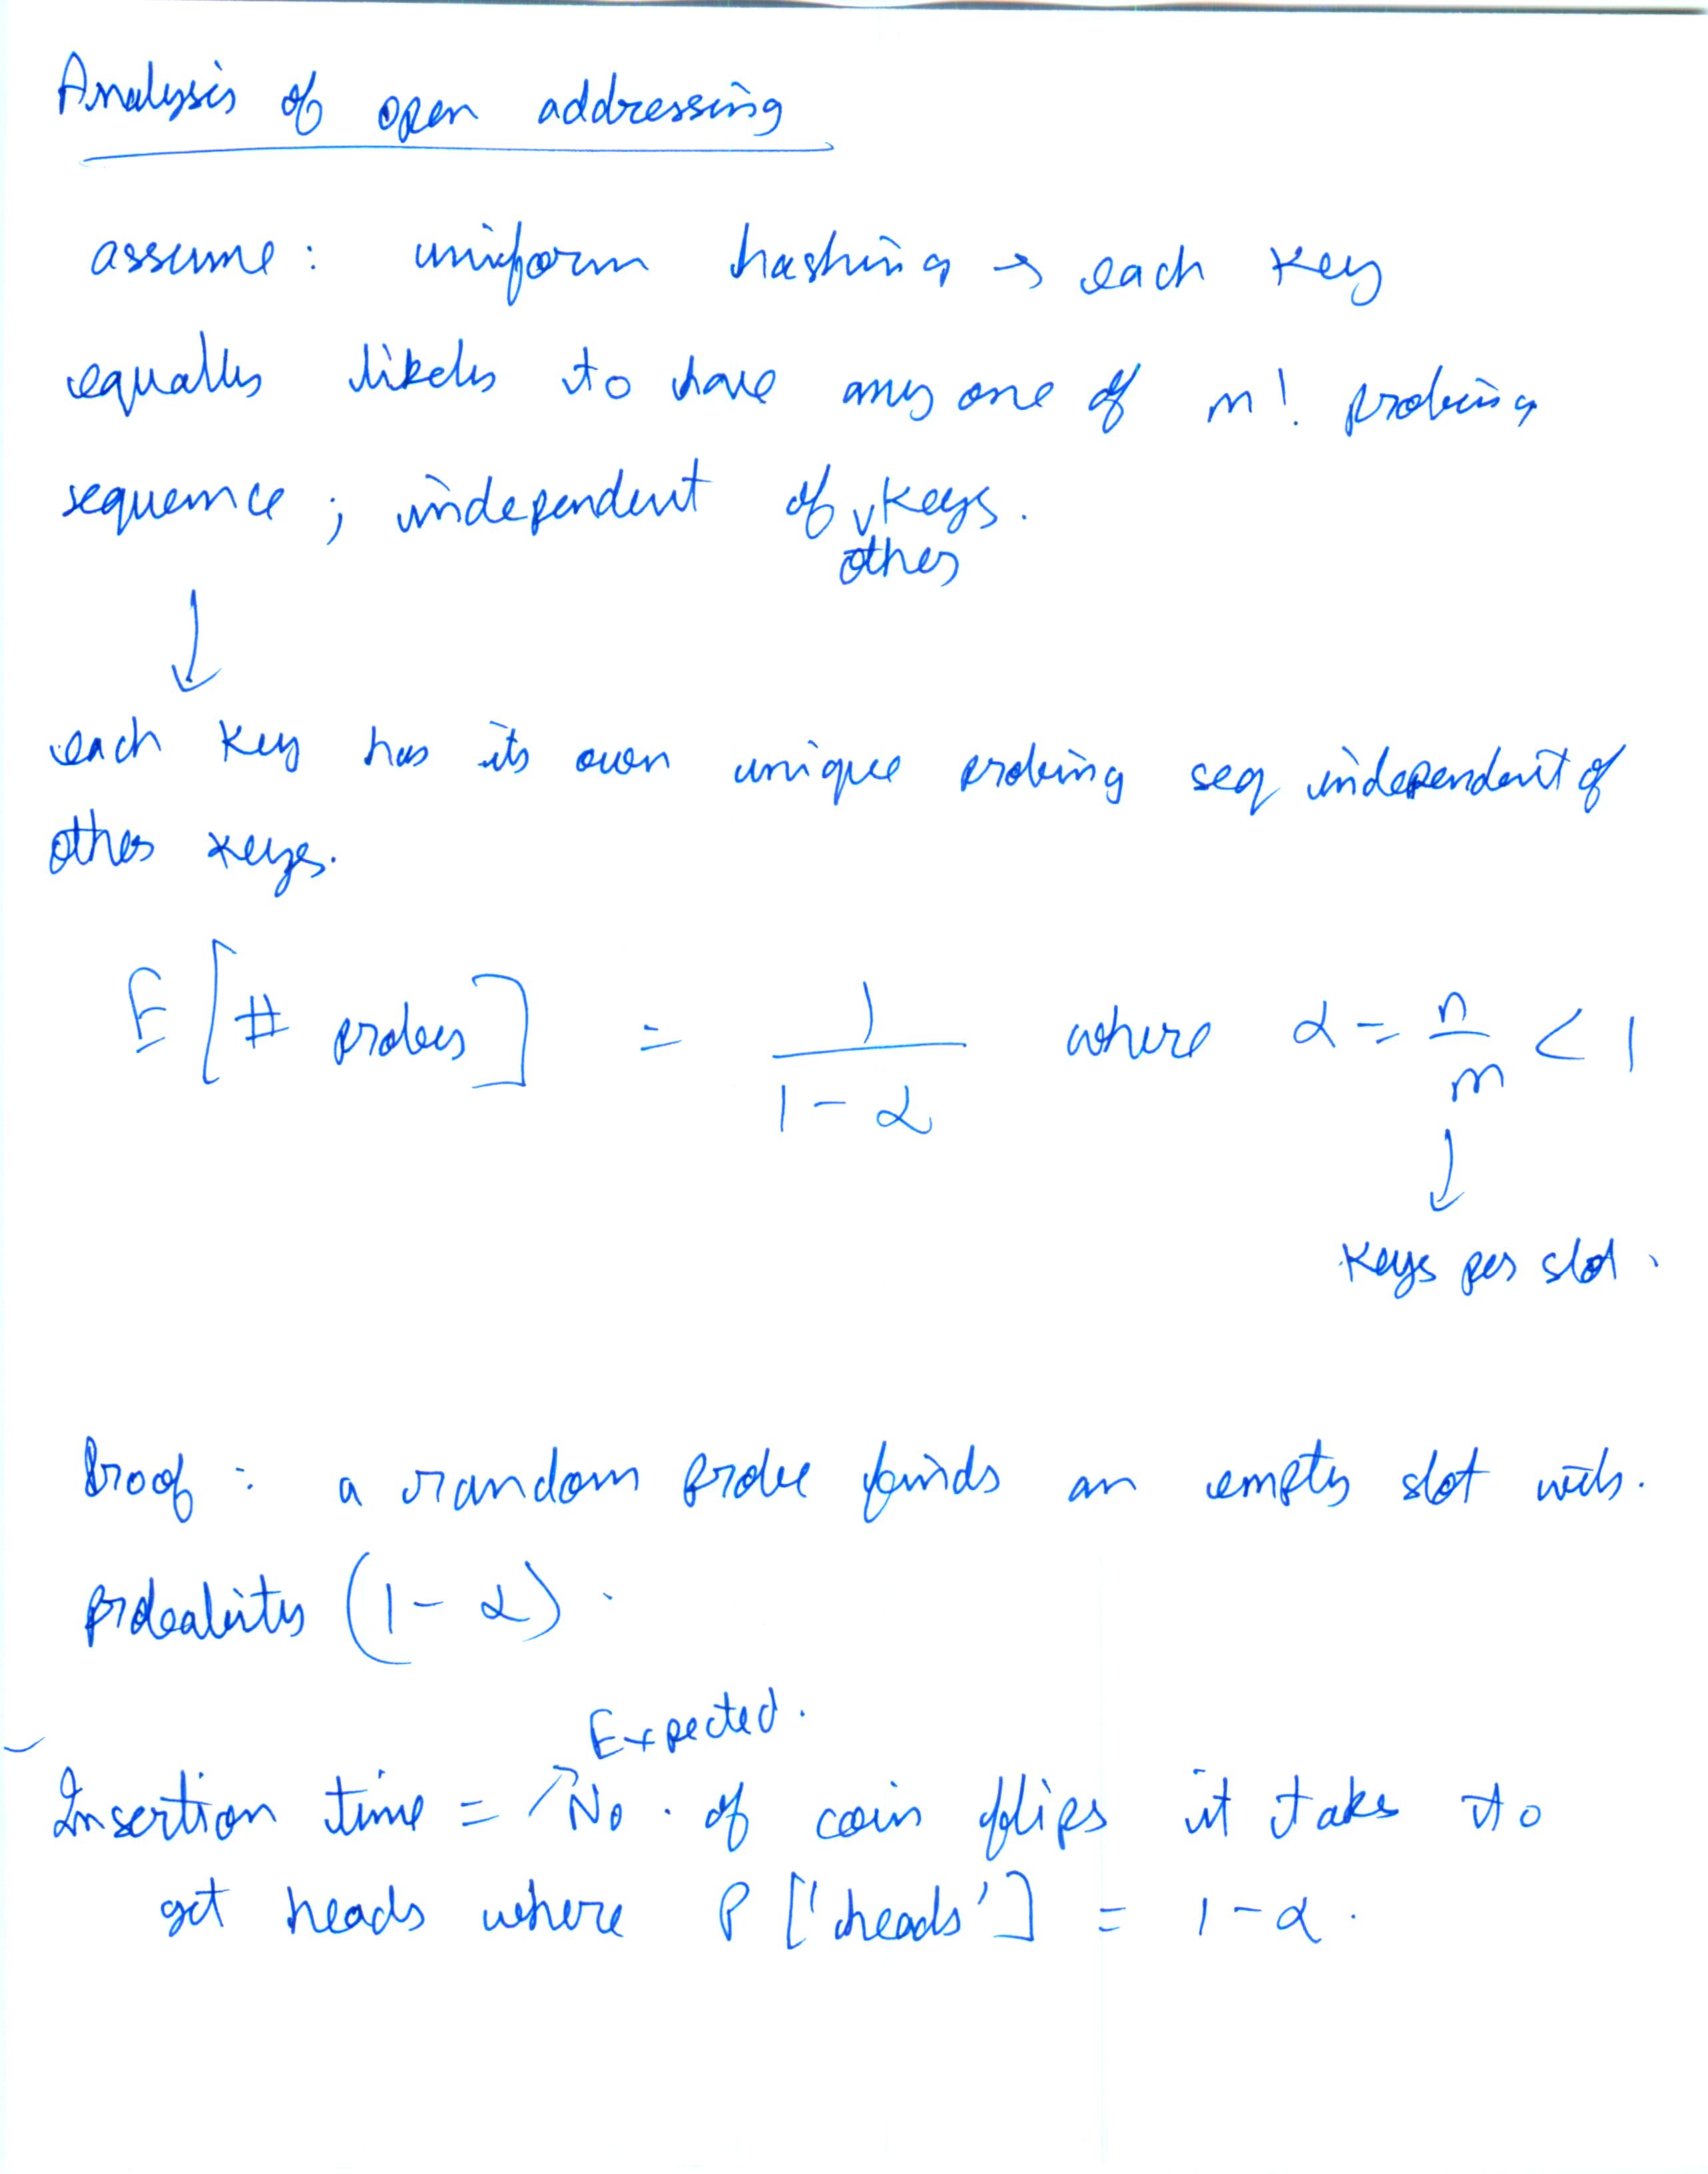 Analysis of open addressing
assume: uniform hashing → each key
equally likely to have any one of m! probing
sequence; independent of ∨ keys.
other
↓
each key has its own unique probing seq independent of
other keys.
E[# probes] = 1/(1-α) where α = n/m < 1
↓
keys per slot.
Proof: a random probe finds an empty slot with.
probability (1-α).
Expected.
Insertion time = No. of coin flips it takes to
get heads where P['heads'] = 1-α.